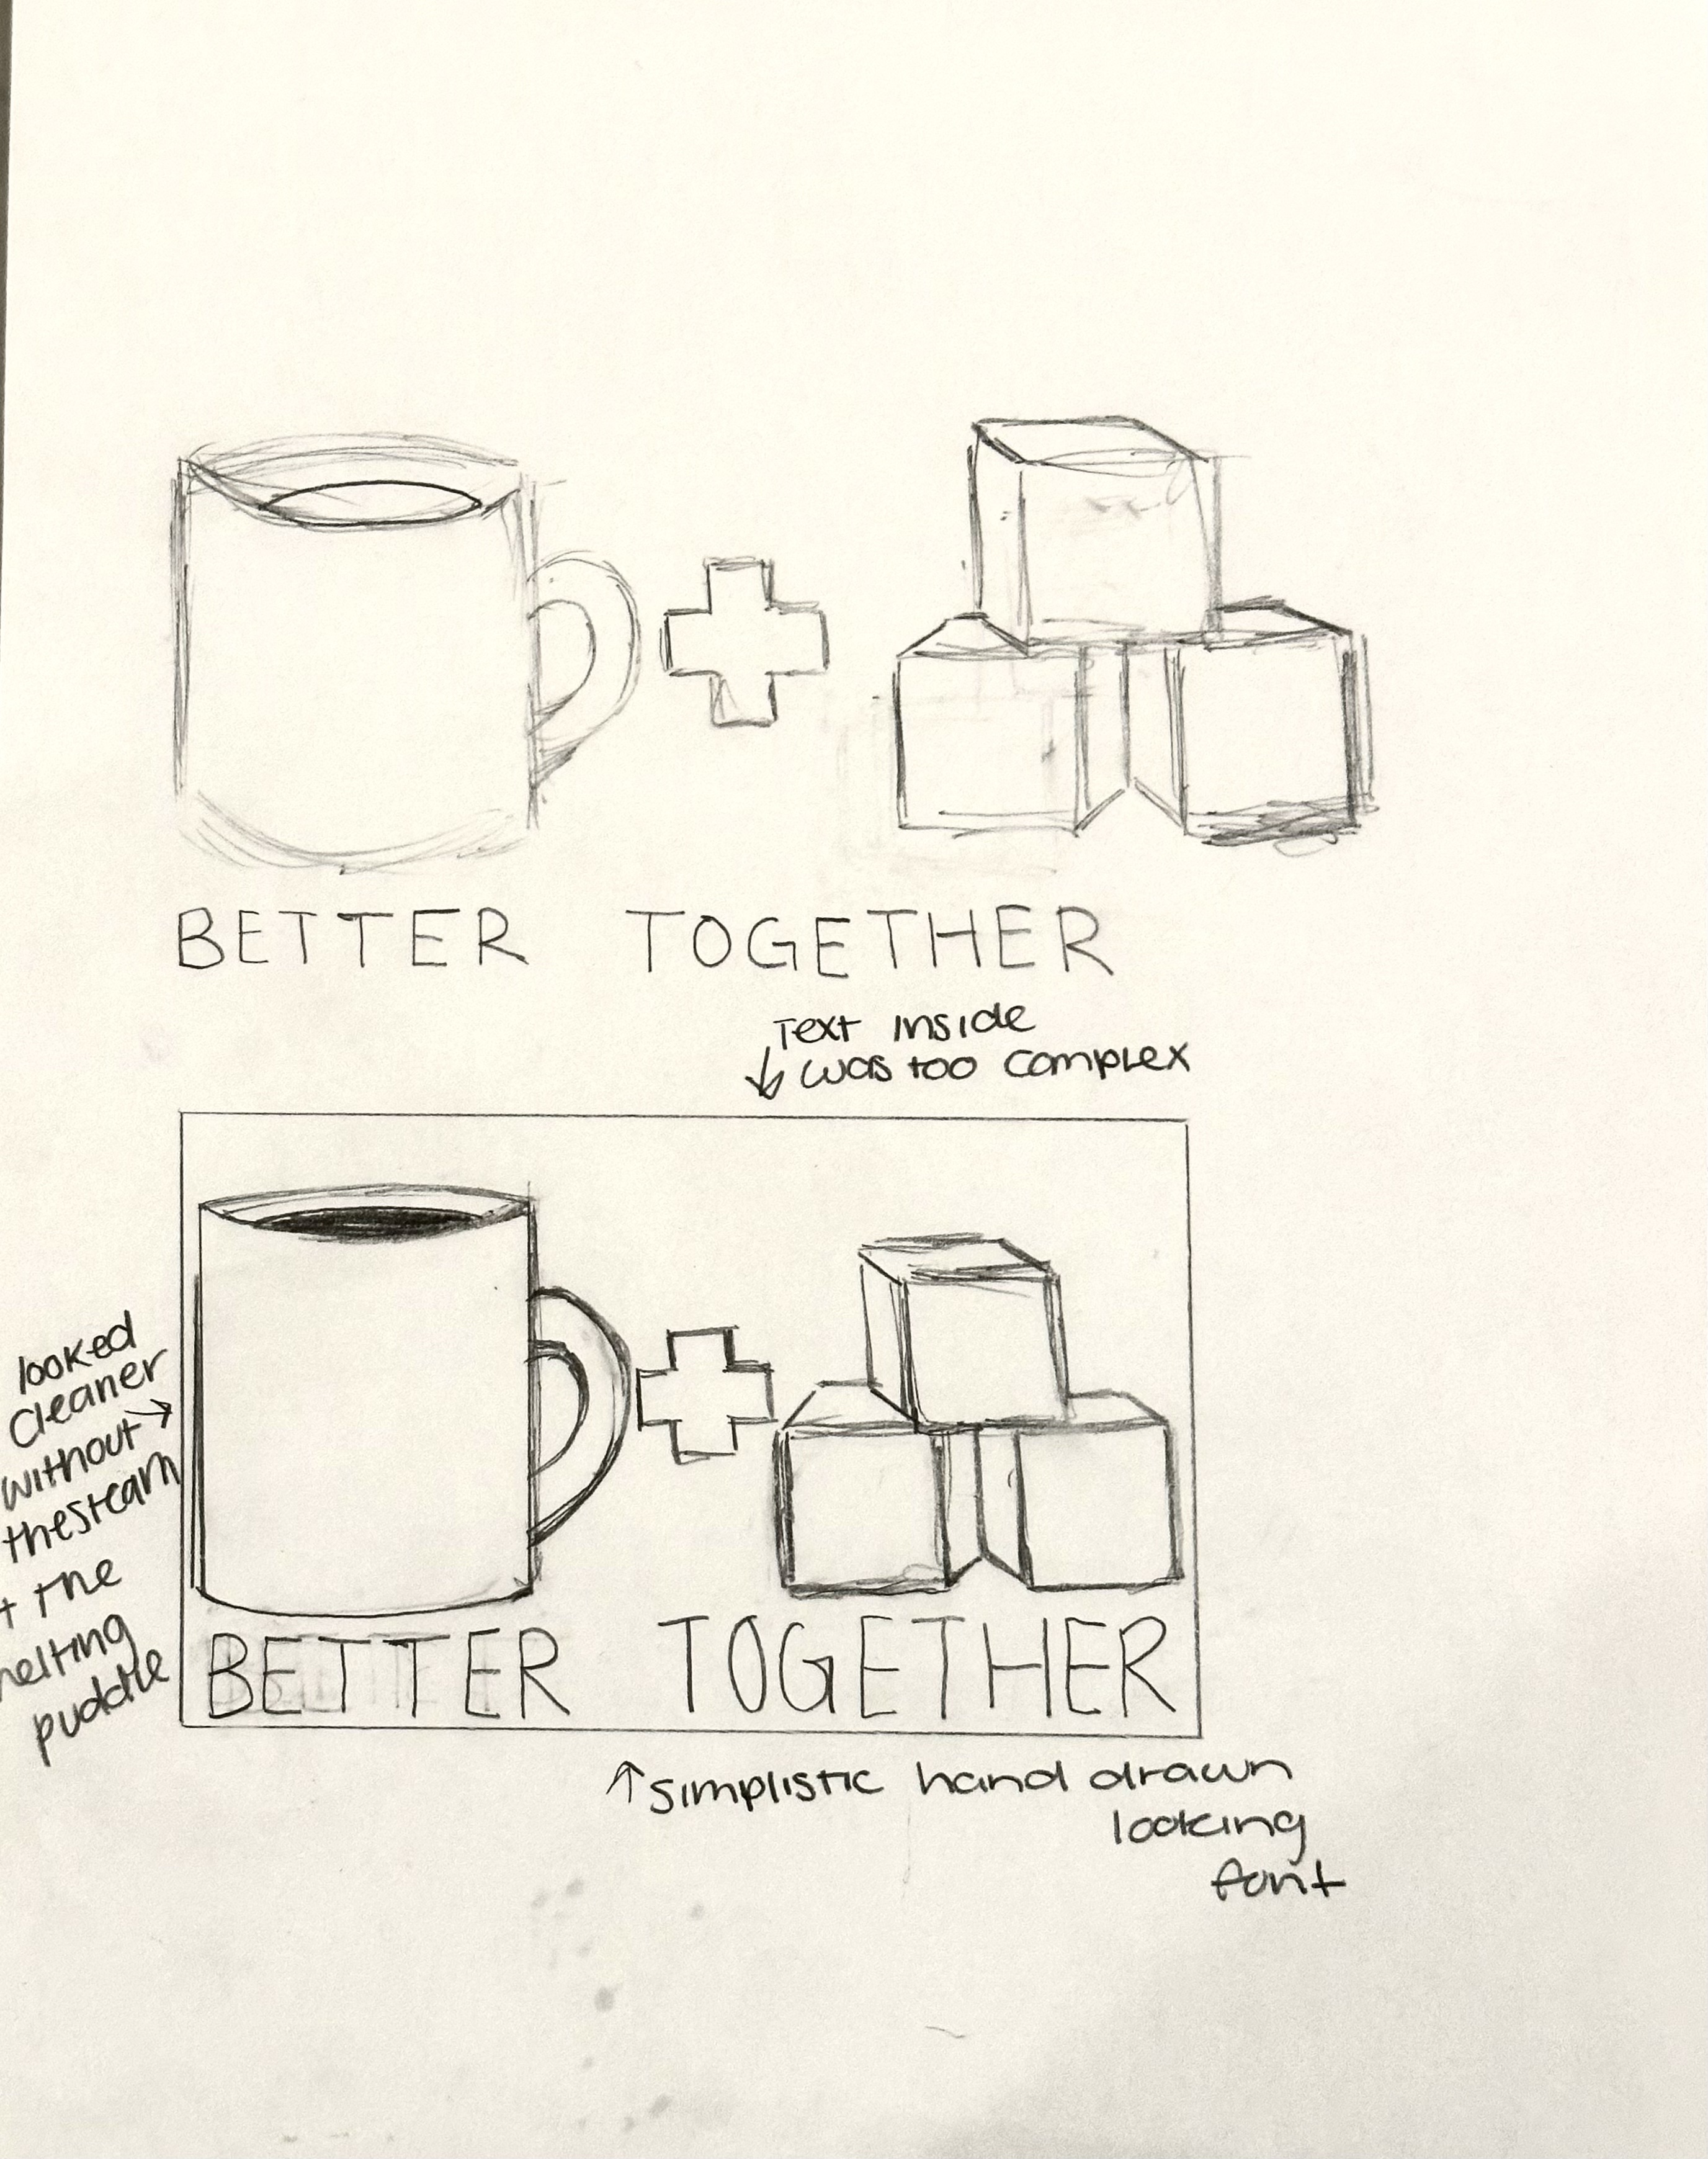 BETTER TOGETHER
Text inside
was too complex
looked
cleaner
without
the steam
+ the
melting
puddle
BETTER TOGETHER
simplistic hand drawn
looking
font